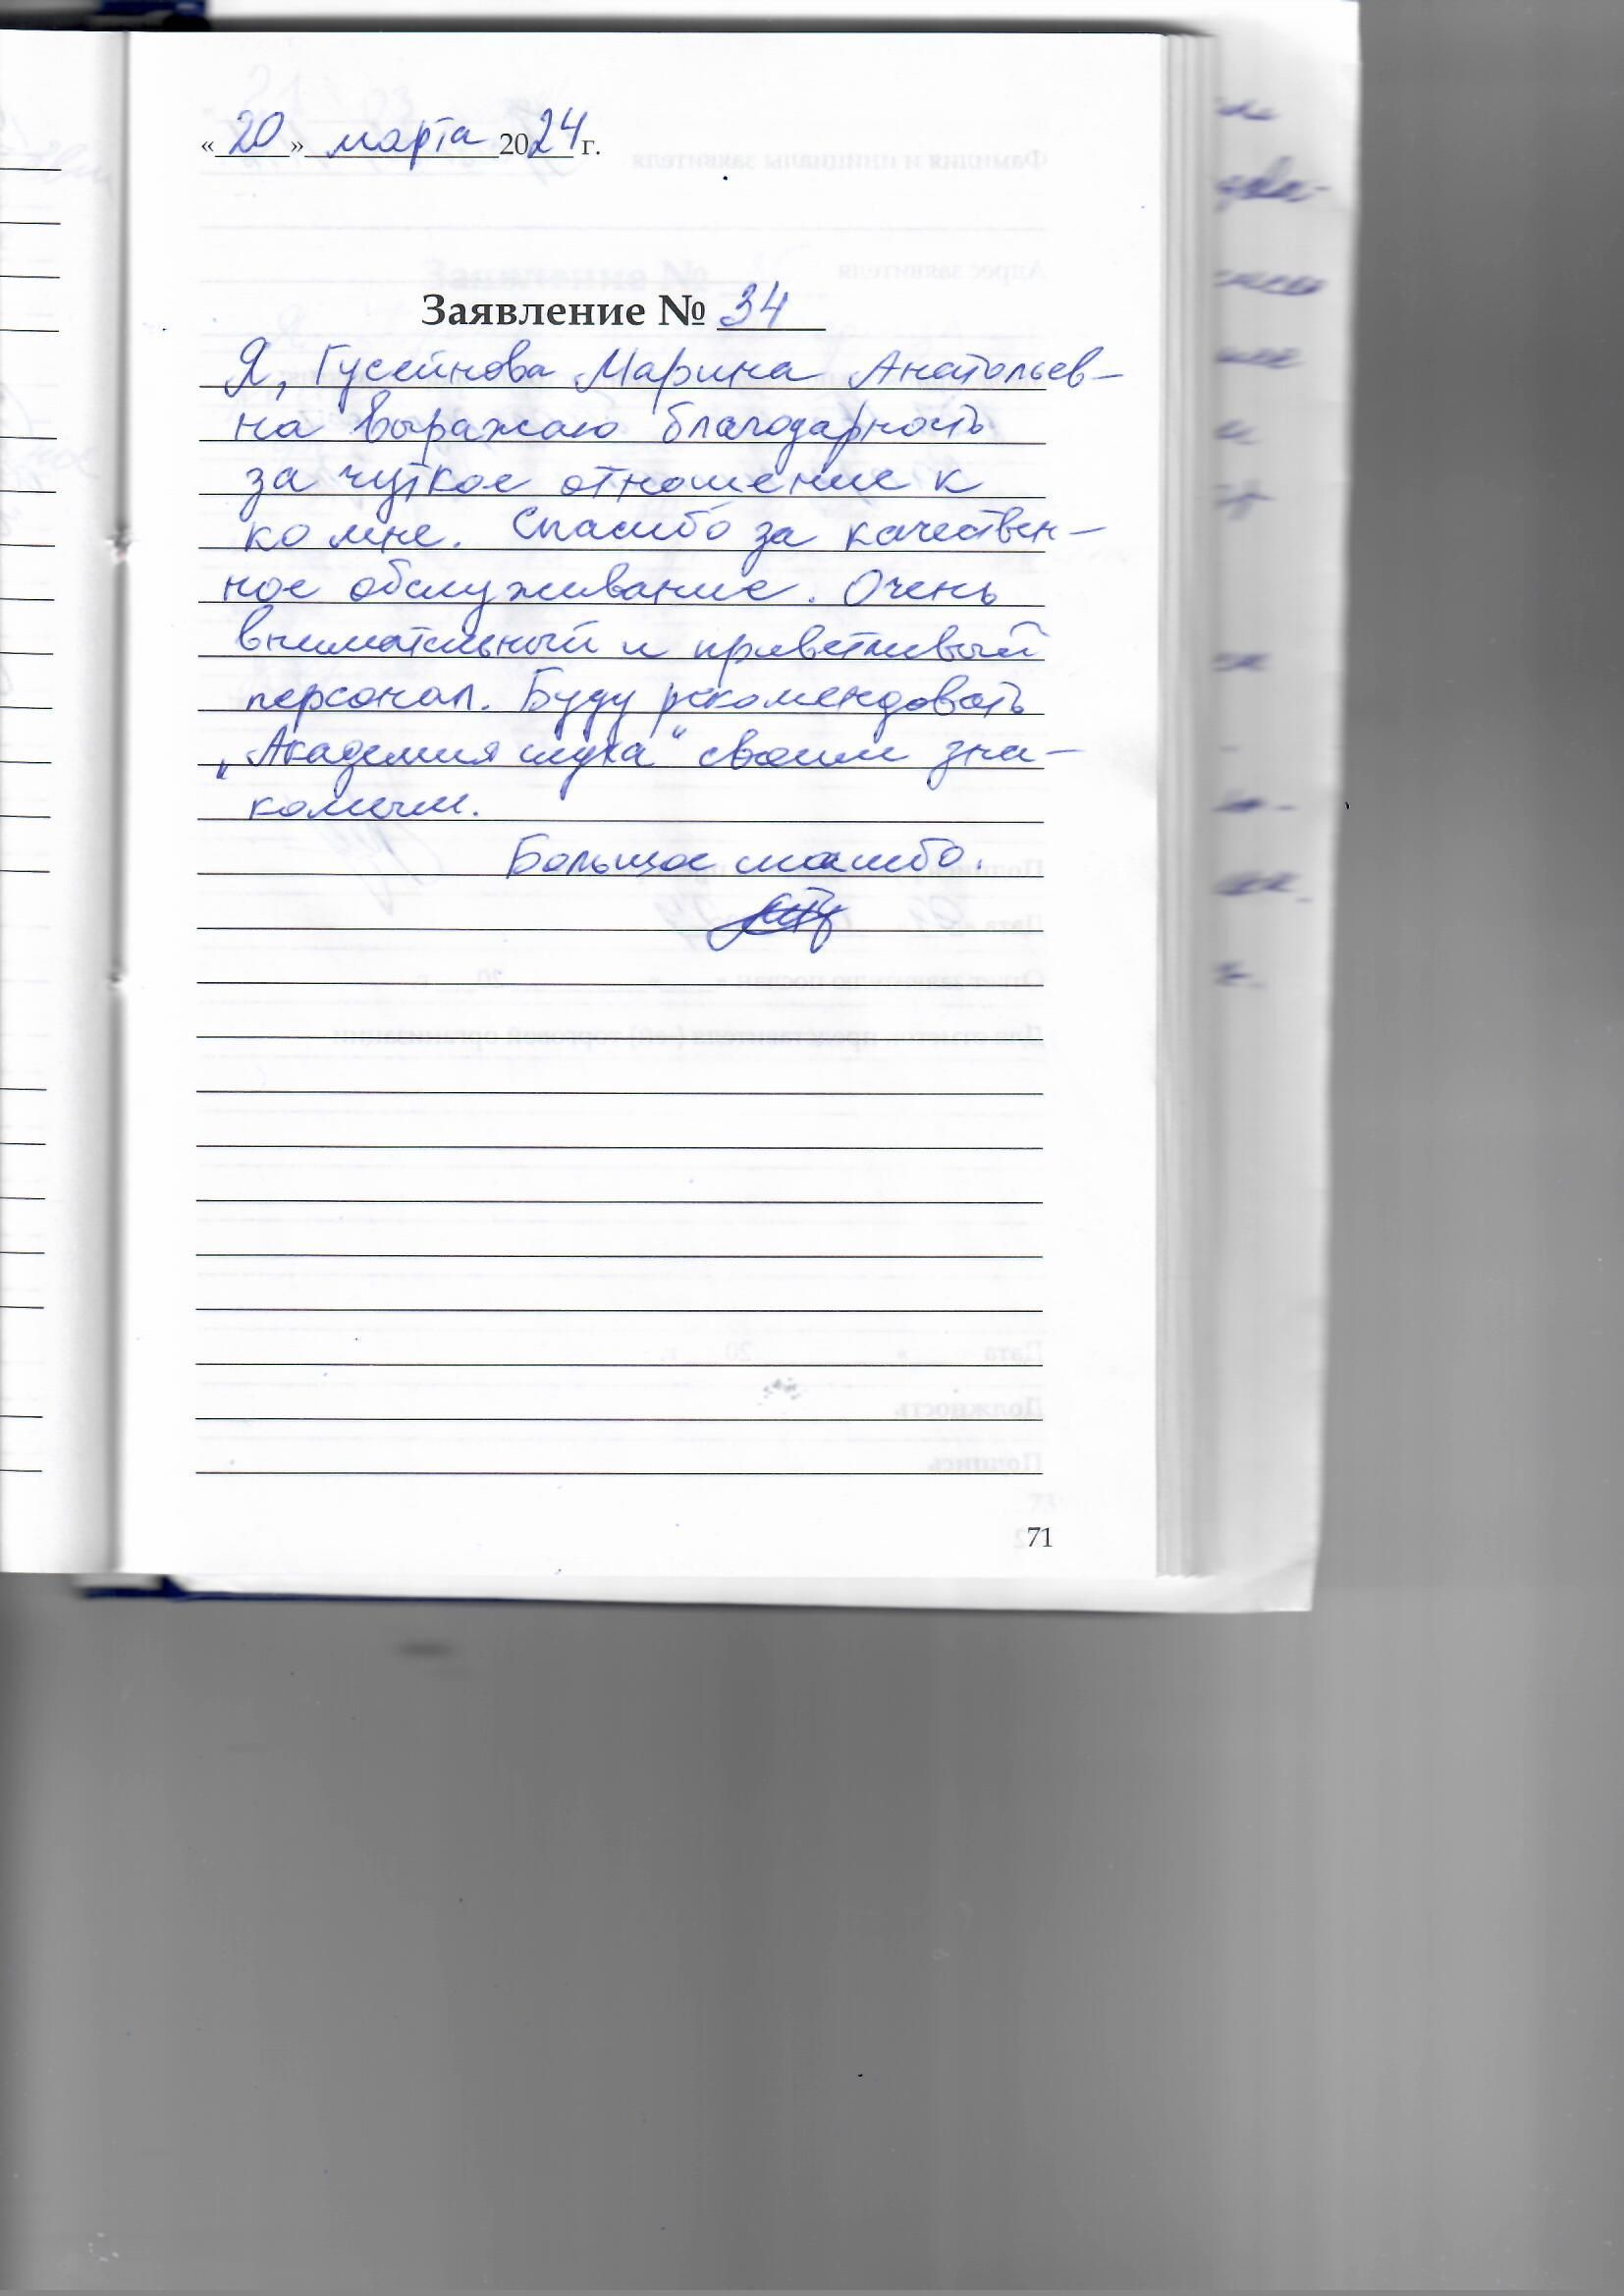 «20» марта 2024 г.
Заявление № 34
Я, Гусейнова Марина Анатольев-
на выражаю благодарность
за чуткое отношение к
ко мне. Спасибо за качествен-
ное обслуживание. Очень
внимательный и приветливый
персонал. Буду рекомендовать
„Академия слуха“ своим зна-
комым.
Большое спасибо.
71